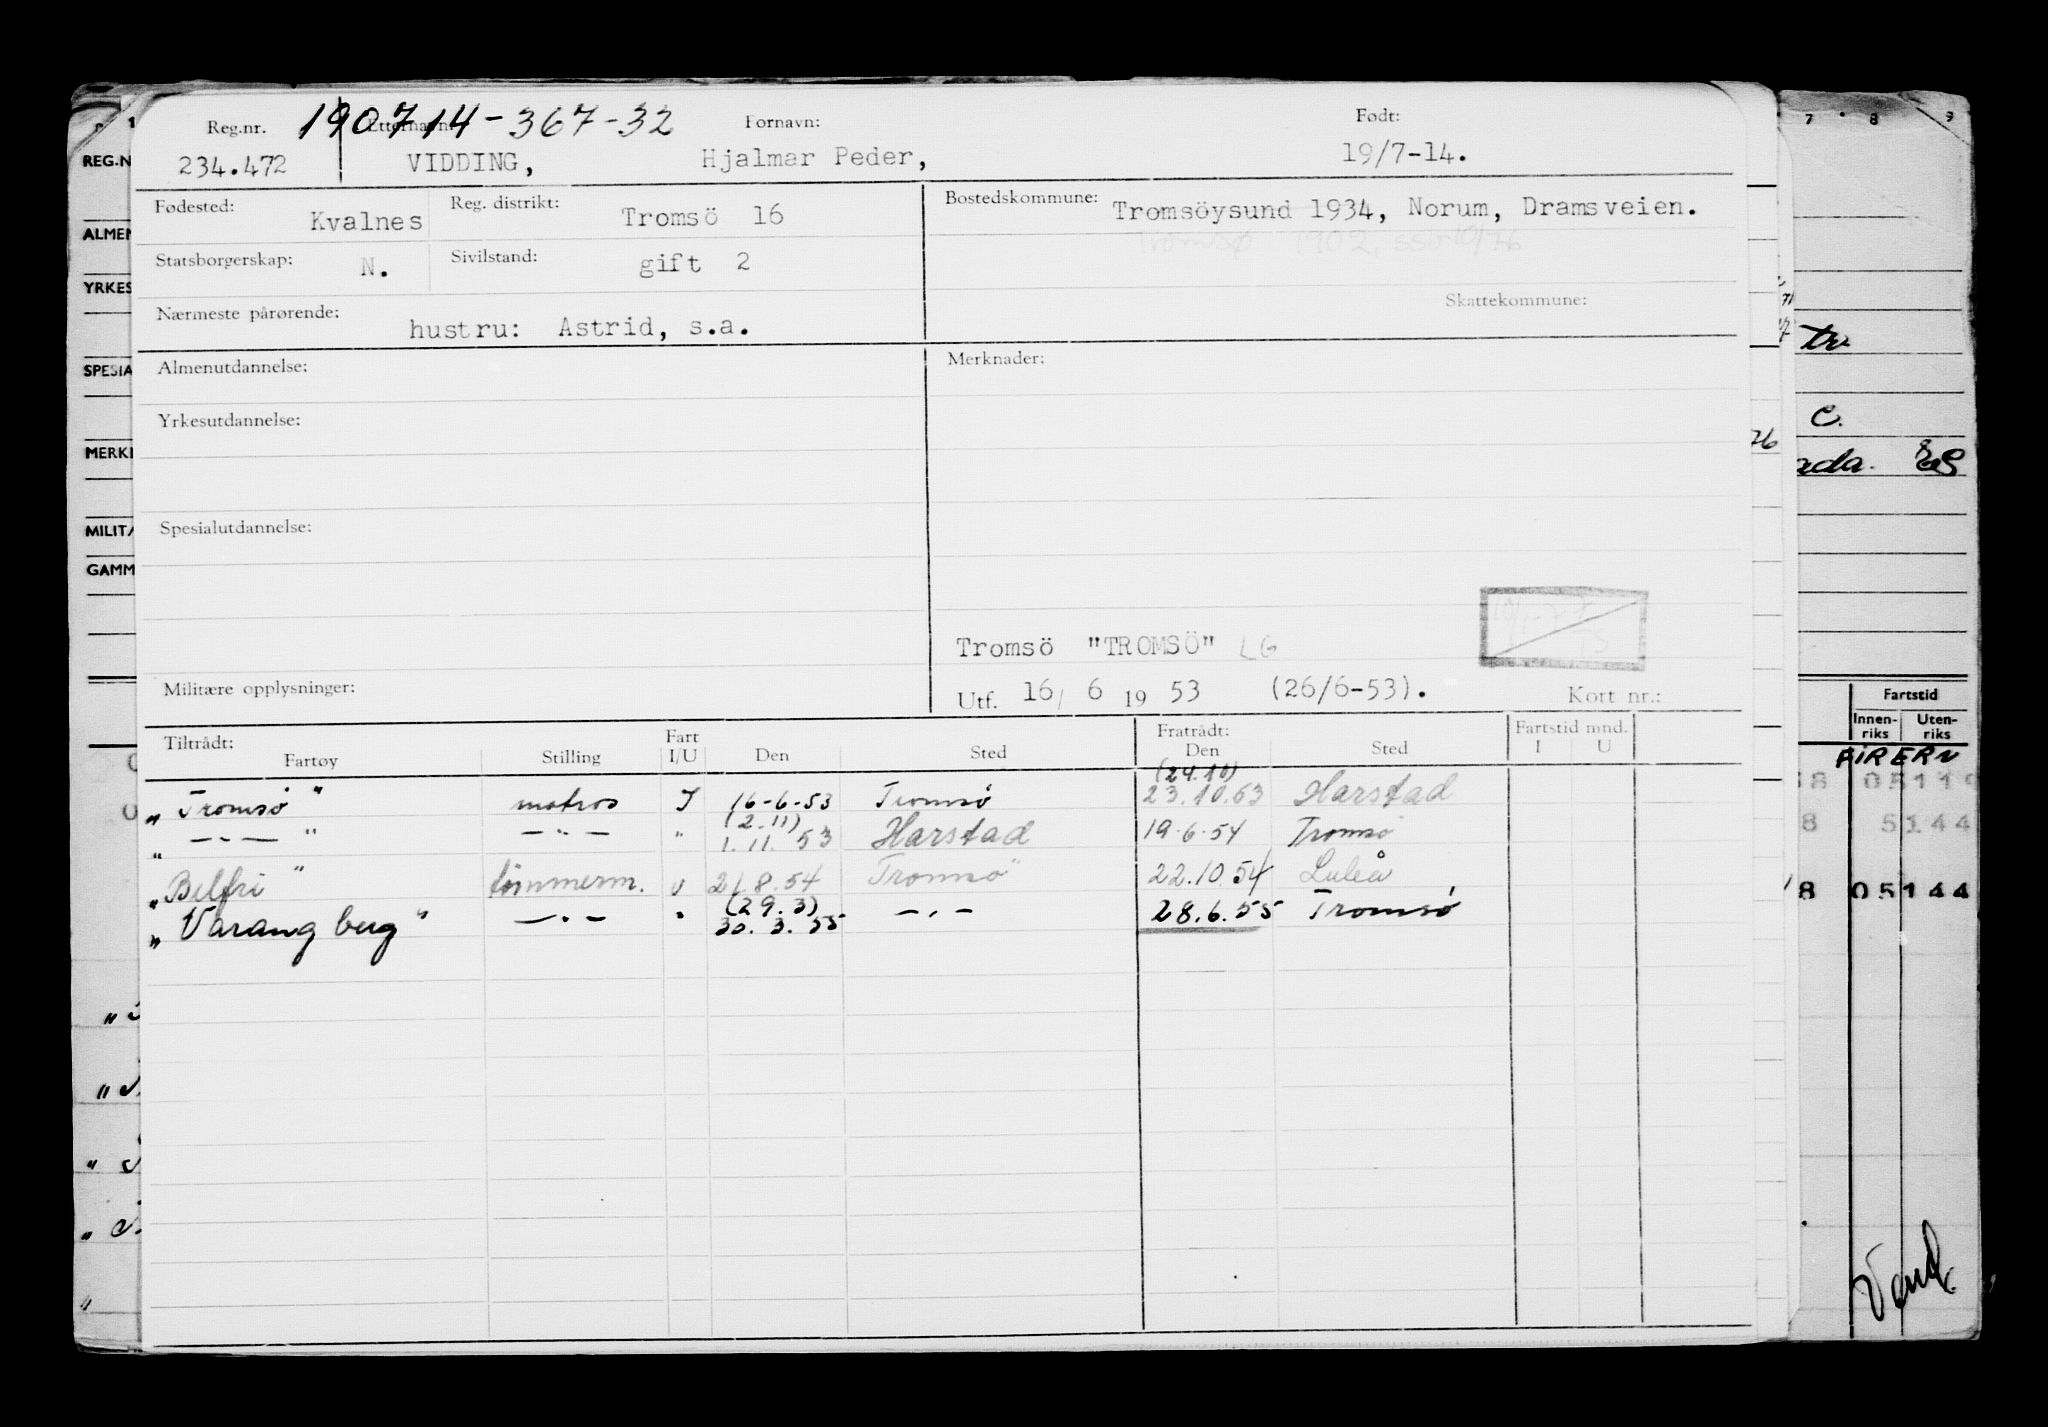 Reg.nr. 190714-367-32 Fornavn: Født:
234.472 VIDDING, Hjalmar Peder, 19/7-14.
Fødested: Kvalnes Reg. distrikt: Tromsö 16 Bostedskommune: Tromsöysund 1934, Norum, Dramsveien.
Tromsø 1902, 10/76
Statsborgerskap: N. Sivilstand: gift 2
Skattekommune:
Nærmeste pårørende: hustru: Astrid, s.a.
Almenutdannelse: Merknader:
Yrkesutdannelse:
Spesialutdannelse:
Tromsö "TROMSÖ" LG
Militære opplysninger: Utf. 16/ 6 19 53 (26/6-53). Kort nr.:
Tiltrådt: Fart Fratrådt: Fartstid mnd.
Fartøy Stilling I/U Den Sted Den Sted I U
(24.10)
"Tromsø" matros I 16-6-53 Tromsø 23.10.53 Harstad
(2.11)
" —"— " —"— " 1.11.53 Harstad 19.6.54 Tromsø
"Belfri" tömmerm. U 21.8.54 Tromsö 22.10.54 Luleå
(29.3)
"Varangberg" —"— " 30.3.55 —"— 28.6.55 Tromsø
REG.N
ALMEN
YRKES
SPESIA
MERK
MILIT
GAMM
7 8 9
tr
C.
76
Fartstid
Innen-riks Uten-riks
8 05119
8 5144
8 05144